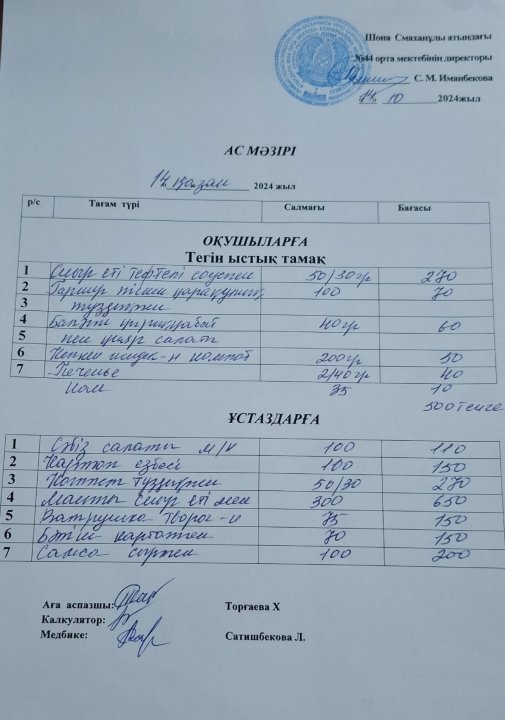 Шона Смаханұлы атындағы
№44 орта мектебінің директоры
С. М. Иманбекова
14. 10 2024жыл
АС МӘЗІРІ
14 қазан 2024 жыл
р/с Тағам түрі Салмағы Бағасы
ОҚУШЫЛАРҒА
Тегін ыстық тамақ
1 Сиыр еті тефтелі соуспен 50/30гр 270
2 Гарнир пісген қарақұмық 100 70
3 тұздықпен
4 Балғын қырыққабат 40гр 60
5 пен қияр салат
6 Кепкен жидек-н компот 200гр 50
7 Печенье 2/40гр 40
Нан 35 10
500 тенге
ҰСТАЗДАРҒА
1 Сәбіз салаты м/к 100 110
2 Картоп езбесі 100 150
3 Котлет тұздықпен 50/30 270
4 Манты сиыр еті мен 300 650
5 Ватрушка творог-и 75 150
6 Бәліш картоппен 70 150
7 Самса сырпен 100 200
Аға аспазшы: Торғаева Х
Калкулятор:
Медбике: Сатишбекова Л.